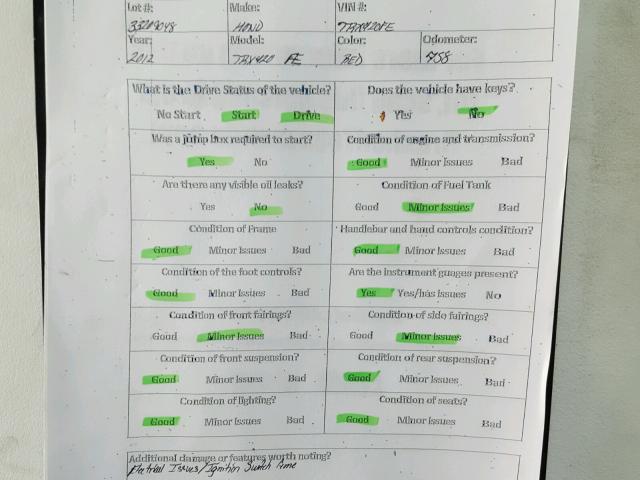 Lot #: Make: VIN #:
33209048 HOND TRX420FE
Year: Model: Color: Odometer:
2012 TRX420 FE RED 758
What is the Drive Status of the vehicle? Does the vehicle have keys?
No Start Start Drive Yes No
Was a jump box required to start? Condition of engine and transmission?
Yes No Good Minor Issues Bad
Are there any visible oil leaks? Condition of Fuel Tank
Yes No Good Minor Issues Bad
Condition of Frame Handlebar and hand controls condition?
Good Minor Issues Bad Good Minor Issues Bad
Condition of the foot controls? Are the instrument guages present?
Good Minor Issues Bad Yes Yes/has issues No
Condition of front fairings? Condition of side fairings?
Good Minor Issues Bad Good Minor Issues Bad
Condition of front suspension? Condition of rear suspension?
Good Minor Issues Bad Good Minor Issues Bad
Condition of lighting? Condition of seats?
Good Minor Issues Bad Good Minor Issues Bad
Additional damage or features worth noting?
Electrical Issues/Ignition Switch